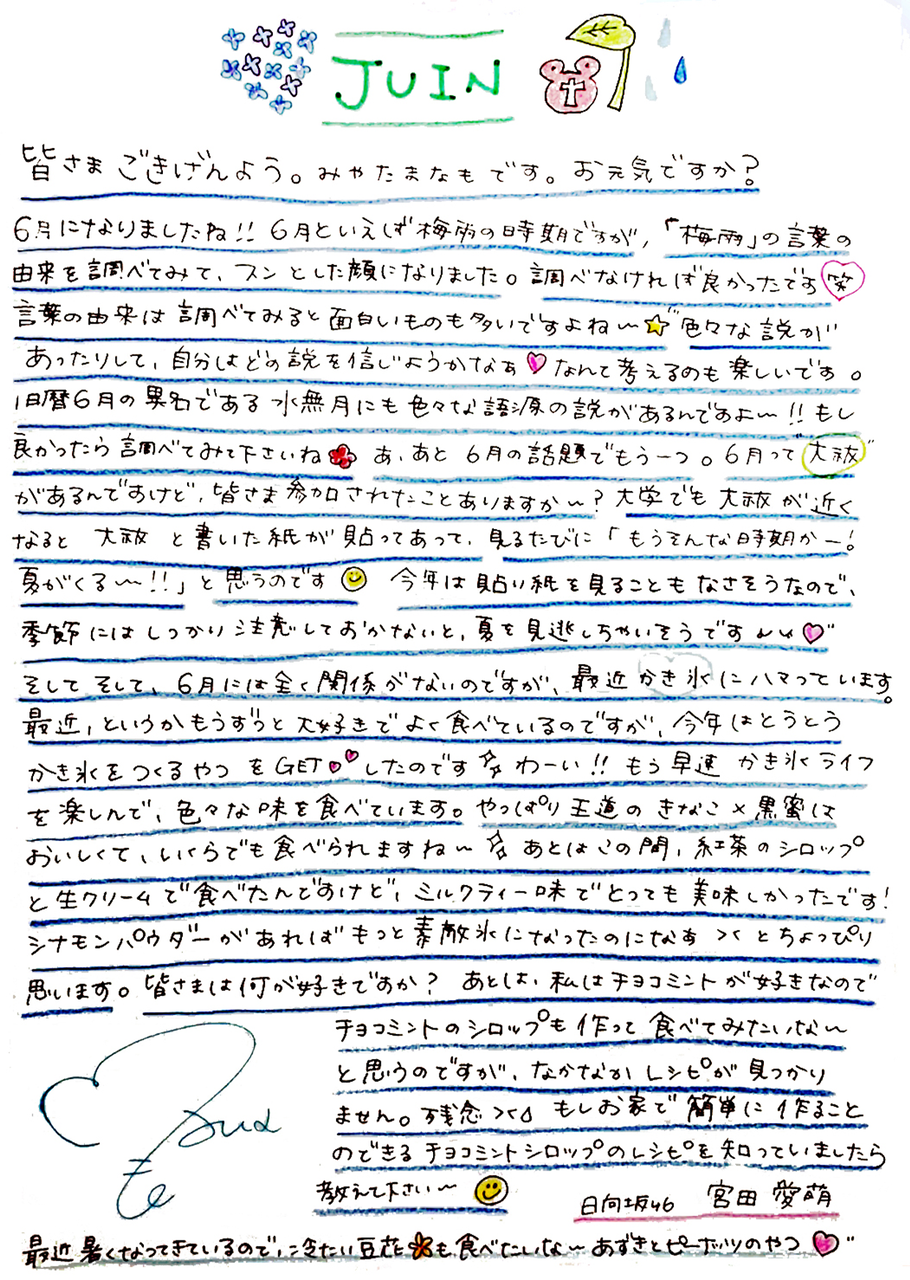 JUIN
皆さま ごきげんよう。みやたまなもです。お元気ですか?
6月になりましたね!! 6月といえば梅雨の時期ですが、「梅雨」の言葉の
由来を調べてみて、フンとした顔になりました。調べなければ良かったです笑
言葉の由来は調べてみると面白いものも多いですよね〜☆"色々な説が
あったりして、自分はどの説を信じようかなぁ♡なんて考えるのも楽しいです。
旧暦6月の異名である水無月にも色々な語源の説があるんですよ〜!! もし
良かったら調べてみて下さいね あ、あと6月の話題でもう一つ。6月って"大祓"
があるんですけど、皆さま参加されたことありますか〜? 大学でも大祓が近く
なると 大祓 と書いた紙が貼ってあって、見るたびに「もうそんな時期かー!
夏がくる〜!!」と思うのです 今年は貼り紙を見ることもなさそうなので、
季節にはしっかり注意しておかないと、夏を見逃しちゃいそうです〜〜♡"
そしてそして、6月には全く関係がないのですが、最近かき氷にハマっています。
最近、というかもうずっと大好きでよく食べているのですが、今年はとうとう
かき氷をつくるやつをGET♡♡したのです☆わーい!! もう早速かき氷ライフ
を楽しんで、色々な味を食べています。やっぱり王道のきなこ×黒蜜は
おいしくて、いくらでも食べられますね〜☆ あとはこの間、紅茶のシロップ
と生クリームで食べたんですけど、ミルクティー味でとっても美味しかったです!
シナモンパウダーがあればもっと素敵氷になったのになぁ >< とちょっぴり
思います。皆さまは何が好きですか? あとは、私はチョコミントが好きなので
チョコミントのシロップも作って食べてみたいな〜
と思うのですが、なかなかレシピが見つかり
ません。残念>< もしお家で簡単に作ること
のできるチョコミントシロップのレシピを知っていましたら
教えて下さい〜
日向坂46 宮田 愛萌
最近暑くなってきているので、冷たい豆花も食べたいな〜あずきとピーナッツのやつ♡"